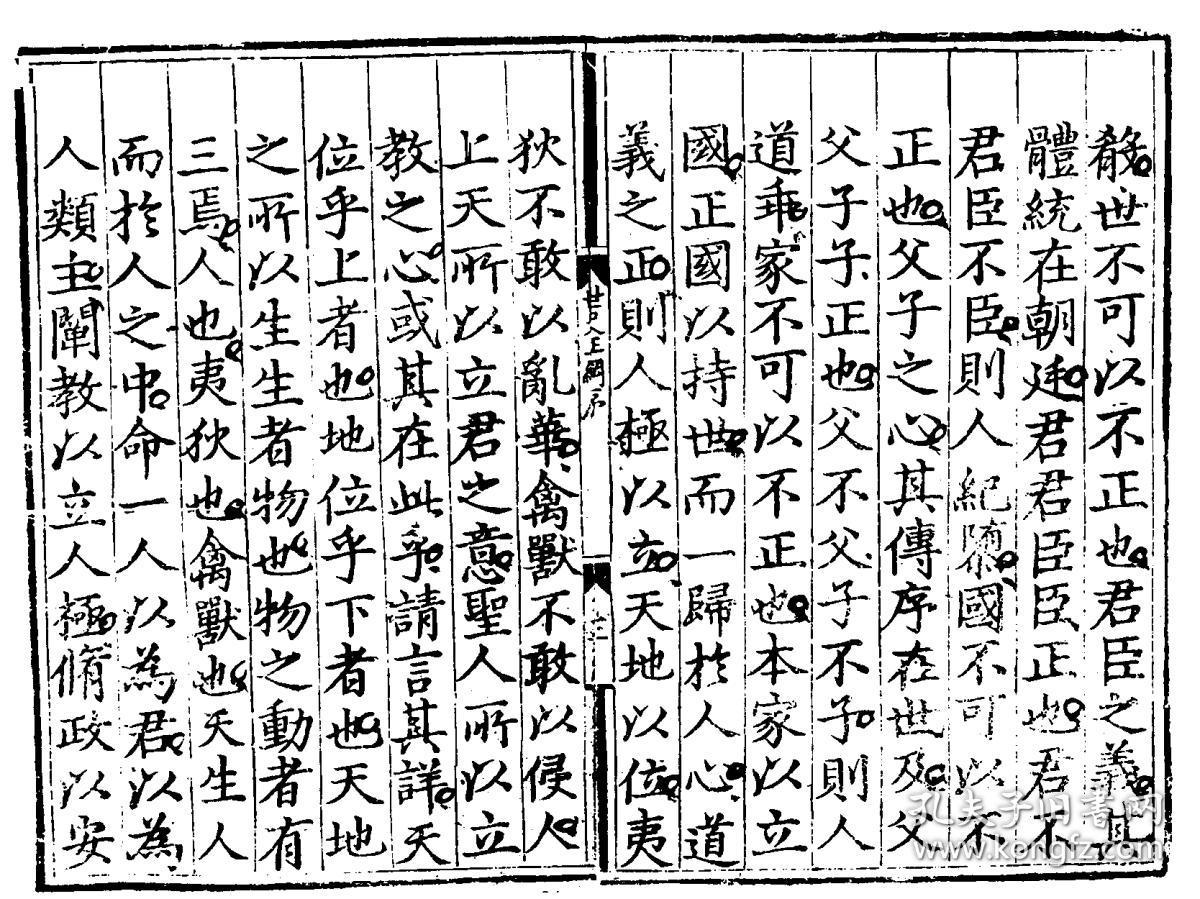 殽世不可以不正也君臣之義其
體統在朝廷君君臣臣正也君不
君臣不臣則人紀隳國不可以不
正也父子之心其傳序在世及父
父子子正也父不父子不子則人
道乖家不可以不正也本家以立
國正國以持世而一歸於人心道
義之正則人極以立天地以位夷
狄不敢以亂華禽獸不敢以侵人
上天所以立君之意聖人所以立
教之心或其在此乎請言其詳天
位乎上者也地位乎下者也天地
之所以生生者物也物之動者有
三焉人也夷狄也禽獸也天生人
而於人之中命一人以為君以為
人類主闡教以立人極脩政以安
孔夫子旧书网
www.kongfz.com